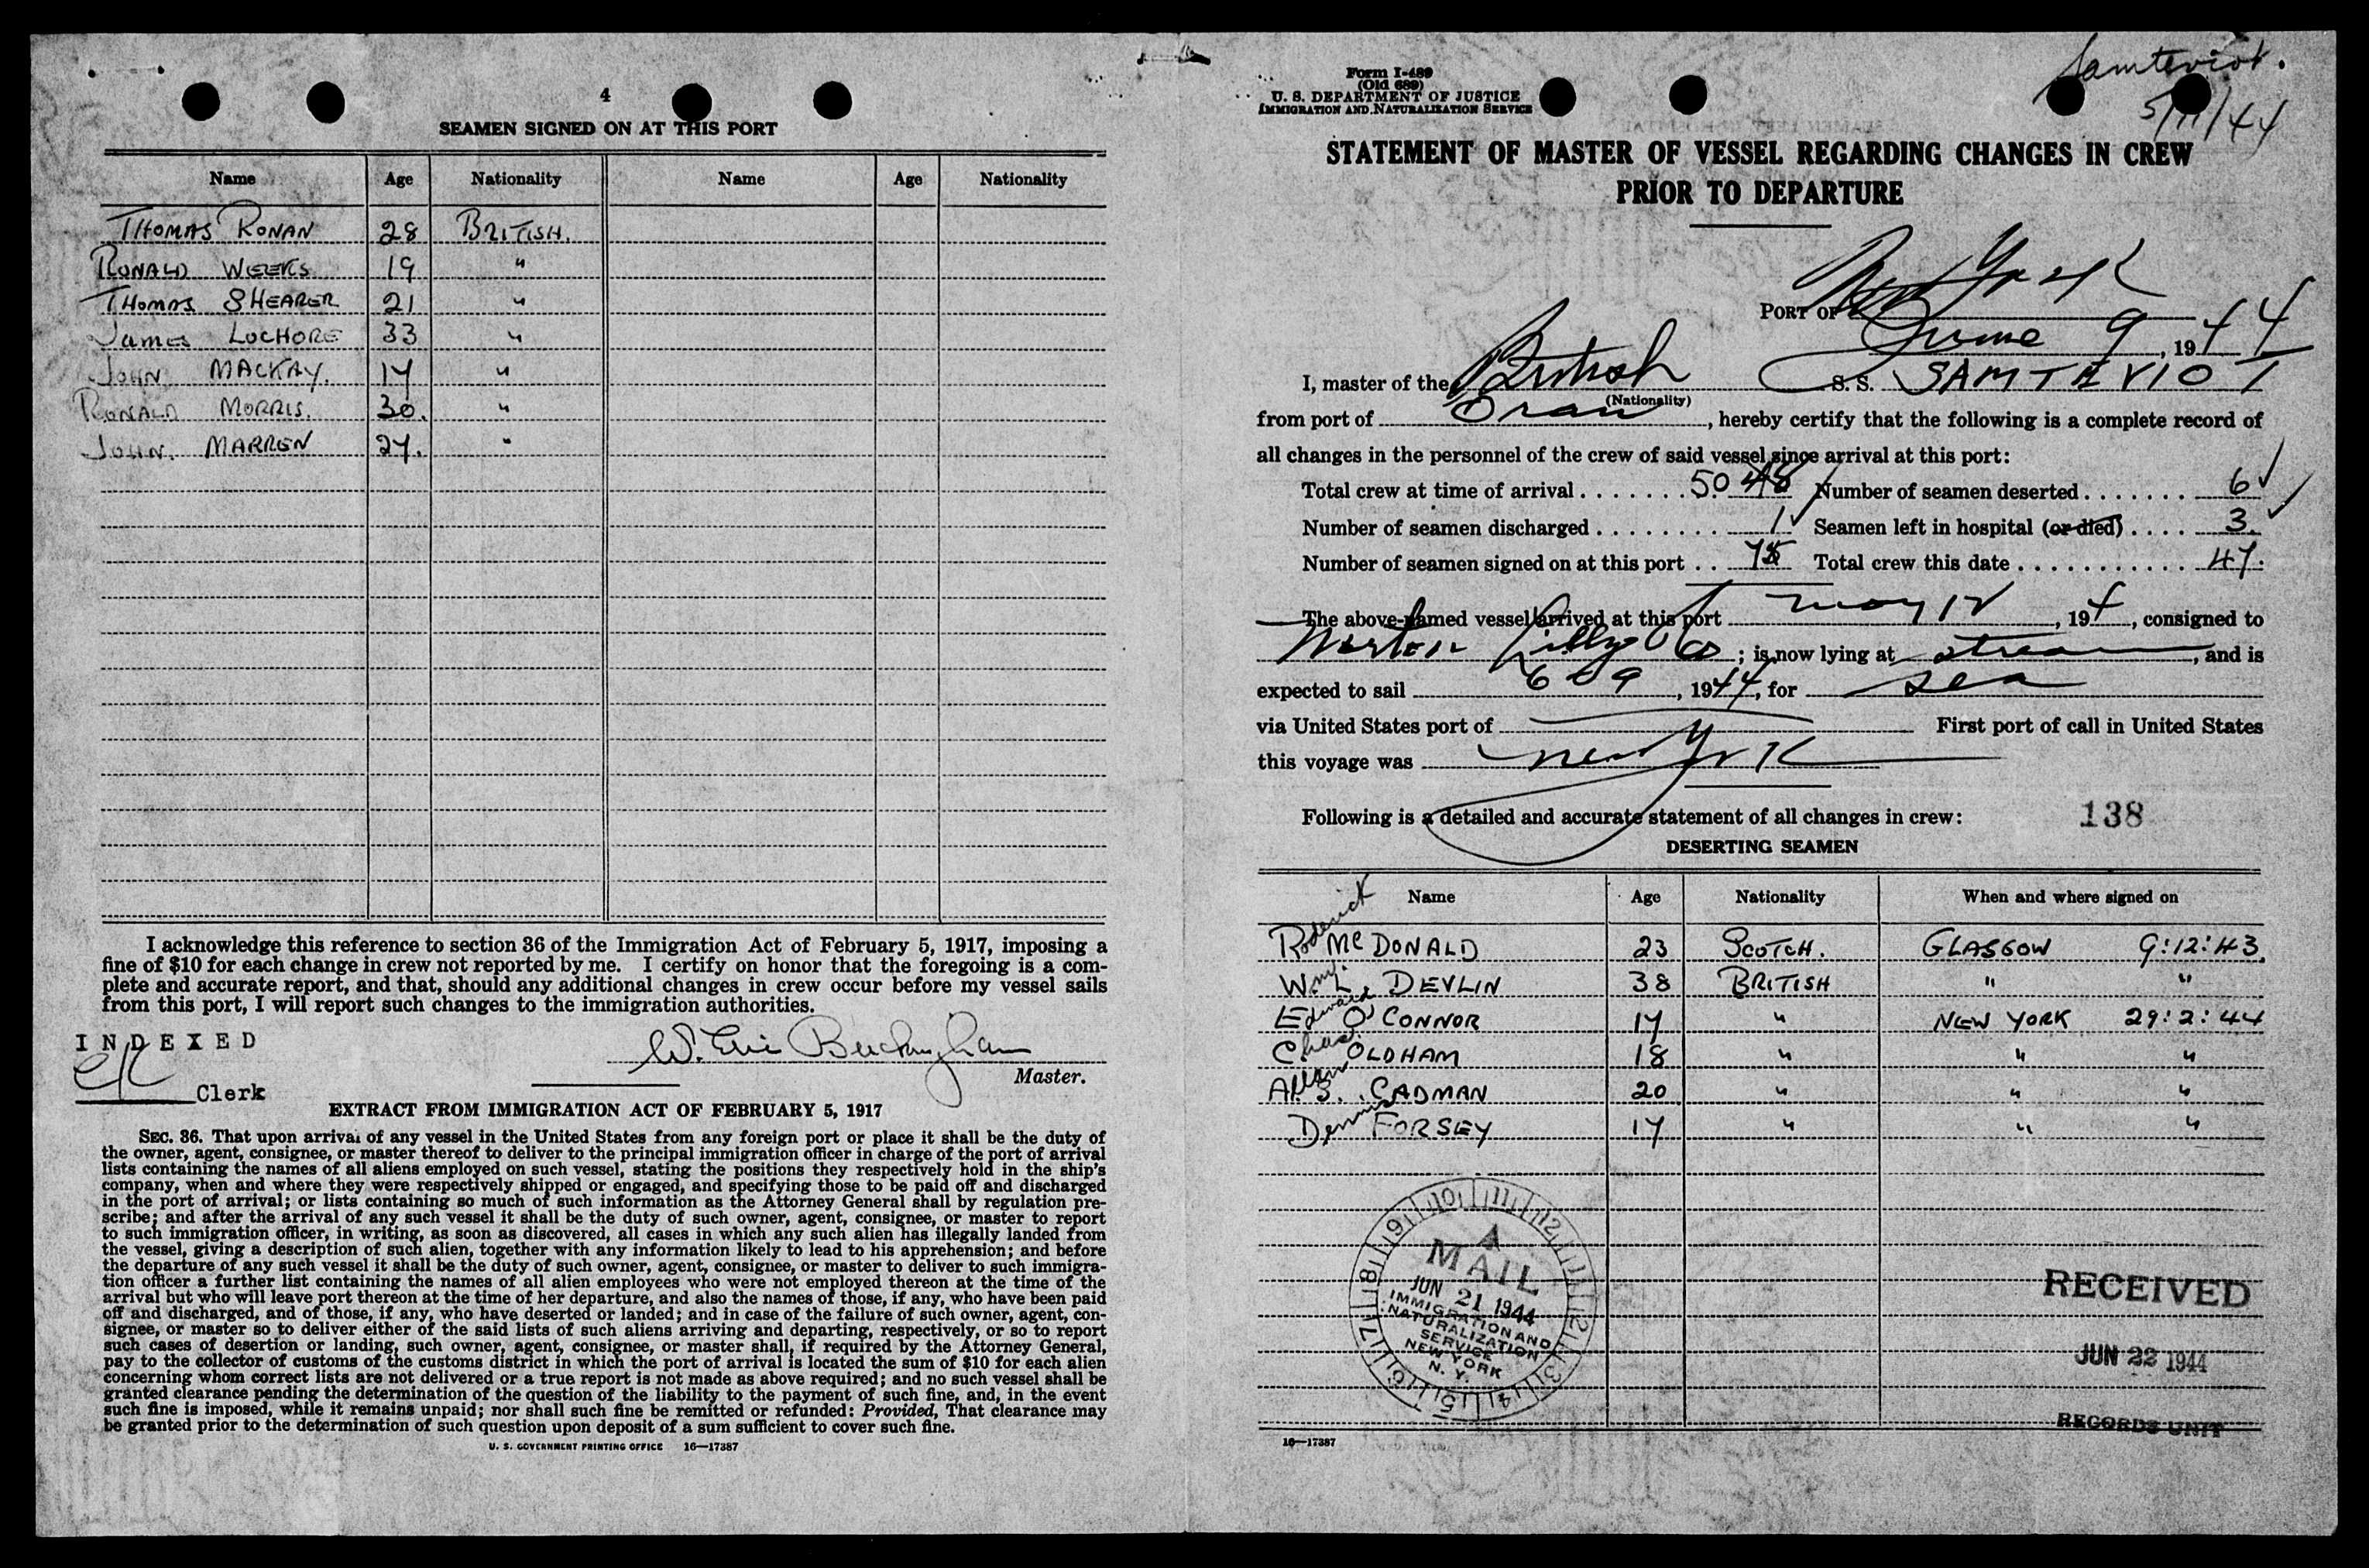 4
SEAMEN SIGNED ON AT THIS PORT
Name Age Nationality Name Age Nationality
THOMAS RONAN 28 BRITISH.
RONALD WEEKS 19 "
THOMAS SHEARER 21 "
James LOCHORE 33 "
JOHN MACKAY. 17 "
RONALD MORRIS. 30. "
JOHN. MARREN 27. "
I acknowledge this reference to section 36 of the Immigration Act of February 5, 1917, imposing a
fine of $10 for each change in crew not reported by me. I certify on honor that the foregoing is a com-
plete and accurate report, and that, should any additional changes in crew occur before my vessel sails
from this port, I will report such changes to the immigration authorities.
INDEXED
W. Eric Buckingham
Master.
Clerk
EXTRACT FROM IMMIGRATION ACT OF FEBRUARY 5, 1917
SEC. 36. That upon arrival of any vessel in the United States from any foreign port or place it shall be the duty of
the owner, agent, consignee, or master thereof to deliver to the principal immigration officer in charge of the port of arrival
lists containing the names of all aliens employed on such vessel, stating the positions they respectively hold in the ship's
company, when and where they were respectively shipped or engaged, and specifying those to be paid off and discharged
in the port of arrival; or lists containing so much of such information as the Attorney General shall by regulation pre-
scribe; and after the arrival of any such vessel it shall be the duty of such owner, agent, consignee, or master to report
to such immigration officer, in writing, as soon as discovered, all cases in which any such alien has illegally landed from
the vessel, giving a description of such alien, together with any information likely to lead to his apprehension; and before
the departure of any such vessel it shall be the duty of such owner, agent, consignee, or master to deliver to such immigra-
tion officer a further list containing the names of all alien employees who were not employed thereon at the time of the
arrival but who will leave port thereon at the time of her departure, and also the names of those, if any, who have been paid
off and discharged, and of those, if any, who have deserted or landed; and in case of the failure of such owner, agent, con-
signee, or master so to deliver either of the said lists of such aliens arriving and departing, respectively, or so to report
such cases of desertion or landing, such owner, agent, consignee, or master shall, if required by the Attorney General,
pay to the collector of customs of the customs district in which the port of arrival is located the sum of $10 for each alien
concerning whom correct lists are not delivered or a true report is not made as above required; and no such vessel shall be
granted clearance pending the determination of the question of the liability to the payment of such fine, and, in the event
such fine is imposed, while it remains unpaid; nor shall such fine be remitted or refunded: Provided, That clearance may
be granted prior to the determination of such question upon deposit of a sum sufficient to cover such fine.
U. S. GOVERNMENT PRINTING OFFICE 16—17387
Samteviot.
5/11/44
Form I-489
(Old 689)
U. S. DEPARTMENT OF JUSTICE
IMMIGRATION AND NATURALIZATION SERVICE
STATEMENT OF MASTER OF VESSEL REGARDING CHANGES IN CREW
PRIOR TO DEPARTURE
PORT OF New York
June 9, 1944
I, master of the British S. S. SAMTEVIOT
(Nationality)
from port of Oran, hereby certify that the following is a complete record of
all changes in the personnel of the crew of said vessel since arrival at this port:
Total crew at time of arrival ....... 50 48 Number of seamen deserted ....... 6
Number of seamen discharged ........ 1 Seamen left in hospital (or died) .... 3.
Number of seamen signed on at this port .. 7 Total crew this date ............ 47.
The above-named vessel arrived at this port May 12, 194, consigned to
Norton Lilly Co; is now lying at stream, and is
expected to sail 6 - 9, 1944, for sea
via United States port of First port of call in United States
this voyage was New York
Following is a detailed and accurate statement of all changes in crew:
138
DESERTING SEAMEN
Name Age Nationality When and where signed on
Roderick McDONALD 23 SCOTCH. GLASGOW 9:12:43.
Wm. L. DEVLIN 38 BRITISH " "
Edward O'CONNOR 17 " NEW YORK 29:2:44
Chas. OLDHAM 18 " " "
Allan S. CADMAN 20 " " "
Dennis FORSEY 17 " " "
10 11 12 1 2 3 4 5 6 7 8 9
A
MAIL
JUN 21 1944
IMMIGRATION AND
NATURALIZATION
SERVICE
NEW YORK
N. Y.
RECEIVED
JUN 22 1944
RECORDS UNIT
16—17387